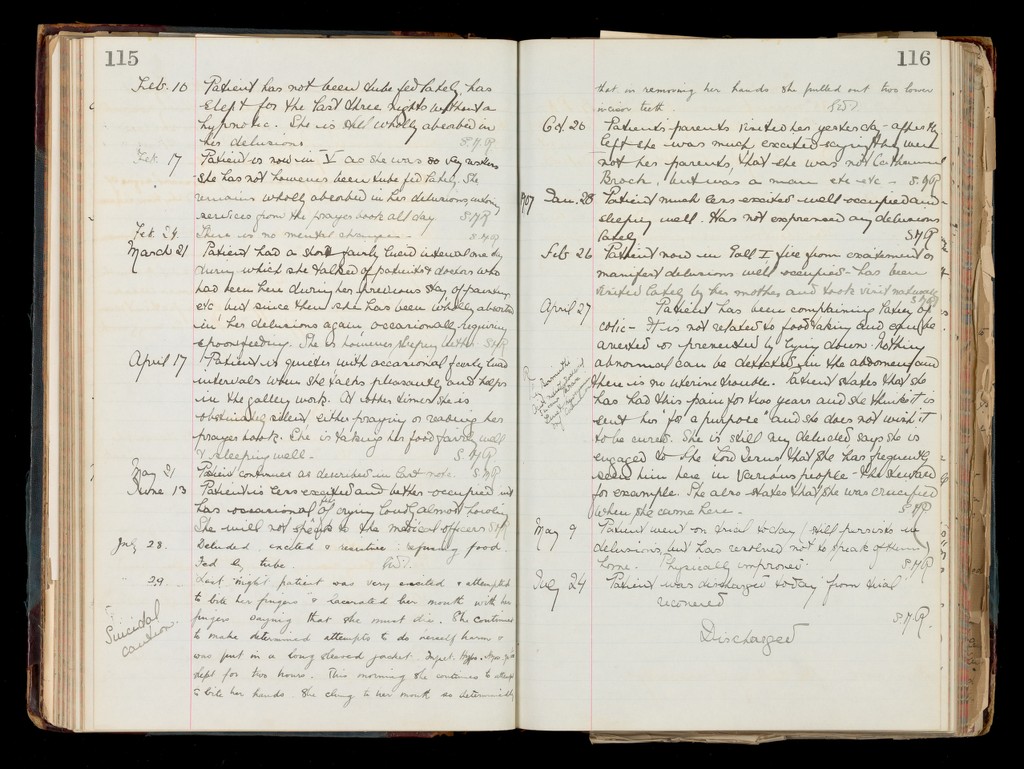 115
Feb. 10 Patient has not been tube fed lately has
slept for the last three nights without a
hypnotic. She is still wholly absorbed in
her delusions S.M.R
Feb 17 Patient is now in V as she was so
She has not however been tube fed lately. She
remains wholly absorbed in her delusions,
services from the prayer book all day S.M.R
Feb 24. There is no mental change. S.M.R
March 21 Patient had a short fairly lucid interval one day
during which she talked of patients & doctors who
had been here during her previous stay,
etc but since then she has been wholly absorbed
in her delusions again, occasionally requiring
spoonfeeding. She is however sleeping better. S.M.R
April 17 Patient is quieter with occasional fairly lucid
intervals when she talks pleasantly and helps
in the gallery work. At other times she is
obstinately silent either praying or reading her
prayer book. She is taking her food fairly well
& sleeping well. S.M.R
May 21 Patient continues as described in last note. S.M.R
June 13 Patient is less excited and better occupied but
has occasional fits of crying loudly almost howling
She will not speak to the medical officers S.M.R
July 28. Deluded, excited & resistive: refusing food.
Fed by tube.
29. Last night patient was very excited & attempted
to bite her fingers & lacerated her mouth with her
fingers saying that she must die. She continued
to make determined attempts to do herself harm &
was put in a long sleeved jacket.
slept for two hours. This morning she continues to attempt
to bite her hands. She clung to her mouth so determinedly
Suicidal
caution.
116
that in removing her hands she pulled out two lower
incisor teeth.
Oct 20 Patient's parents visited her yesterday - after they
left she was much excited saying they were
not her parents, that she was not Catherine
Brock, but was a man etc etc - S.M.R
1907 Jan. 28 Patient much less excited - well occupied and
sleeping well. Has not expressed any delusions
lately S.M.R
Feb 26 Patient now in Gall I, free from excitement or
manifest delusions well occupied - has been
visited lately by her mother and took visit naturally
S.M.R
April 27 Patient has been complaining lately of
colic - It is not related to food taking and can be
arrested or prevented by lying down. Nothing
abnormal can be detected in the abdomen and
there is no uterine trouble. Patient states that she
has had this pain for two years and she thinks it is
sent her "for a purpose" and she does not wish it
to be cured. She is still very deluded says she is
engaged to the Lord Jesus, that she has frequently
seen him here in various people - the Steward
for example. She also states that she was crucified
when she came here - S.M.R
May 9 Patient went on trial today (still persists in
delusions, but has resolved not to speak of them)
home. Physically improved. S.M.R
July 24 Patient was discharged today from trial
recovered
S.M.R.
Discharged